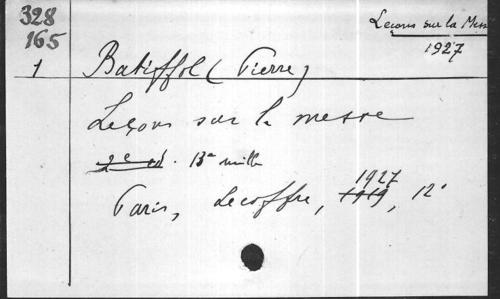 328
165
1
Leçons sur la Mess
1927
Batiffol (Pierre)
Leçons sur la messe
2e éd. 13e mille
1927
Paris, Lecoffre, 1919, 12°